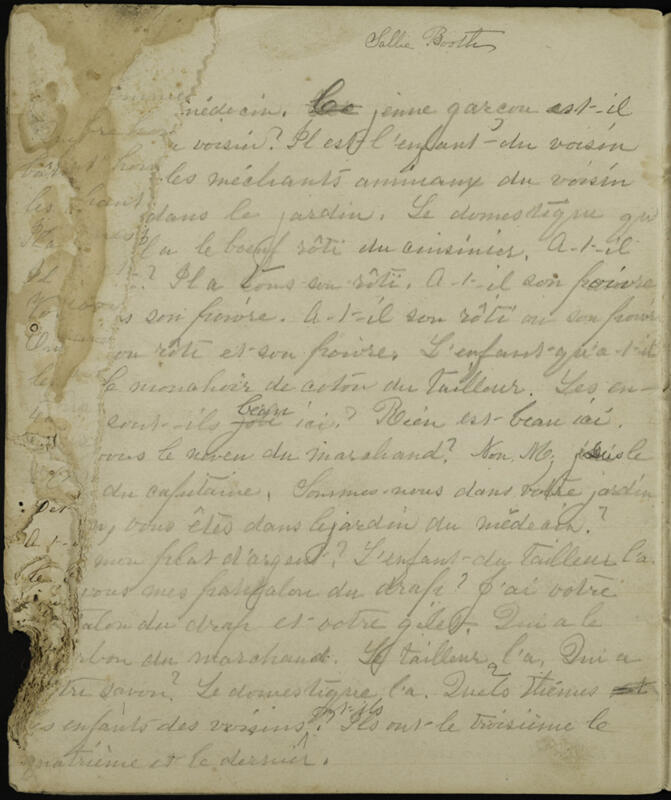 Sallie Booth
médecin. Le jeune garçon est-il
voisin? Il est l'enfant du voisin
les méchants animaux du voisin
dans le jardin. Le domestique qu
Il a le boeuf rôti du cuisinier. A-t-il
? Il a tous son rôti. A-t-il son poivre
s son poivre. A-t-il son rôti ou son poivre
on rôti et son poivre. L'enfant qu'a-t-il
le mouchoir de coton du tailleur. Les en-
sont-ils beau ici? Rien est beau ici.
vous le neveu du marchand? Non, M, je suis le
du capitaine. Sommes-nous dans votre jardin
vous êtês dans le jardin du médecin?
mon plat d'argent? L'enfant du tailleur l'a.
vous mes pantalon du drap? J'ai votre
talon du drap et votre gilet. Qui a le
rbon du marchand. Le tailleur l'a. Qui a
tre savon? Le domestique l'a. Quels thèmes
es enfants des voisins? ont-ils Ils ont le troisième le
quatrième et le dernier.